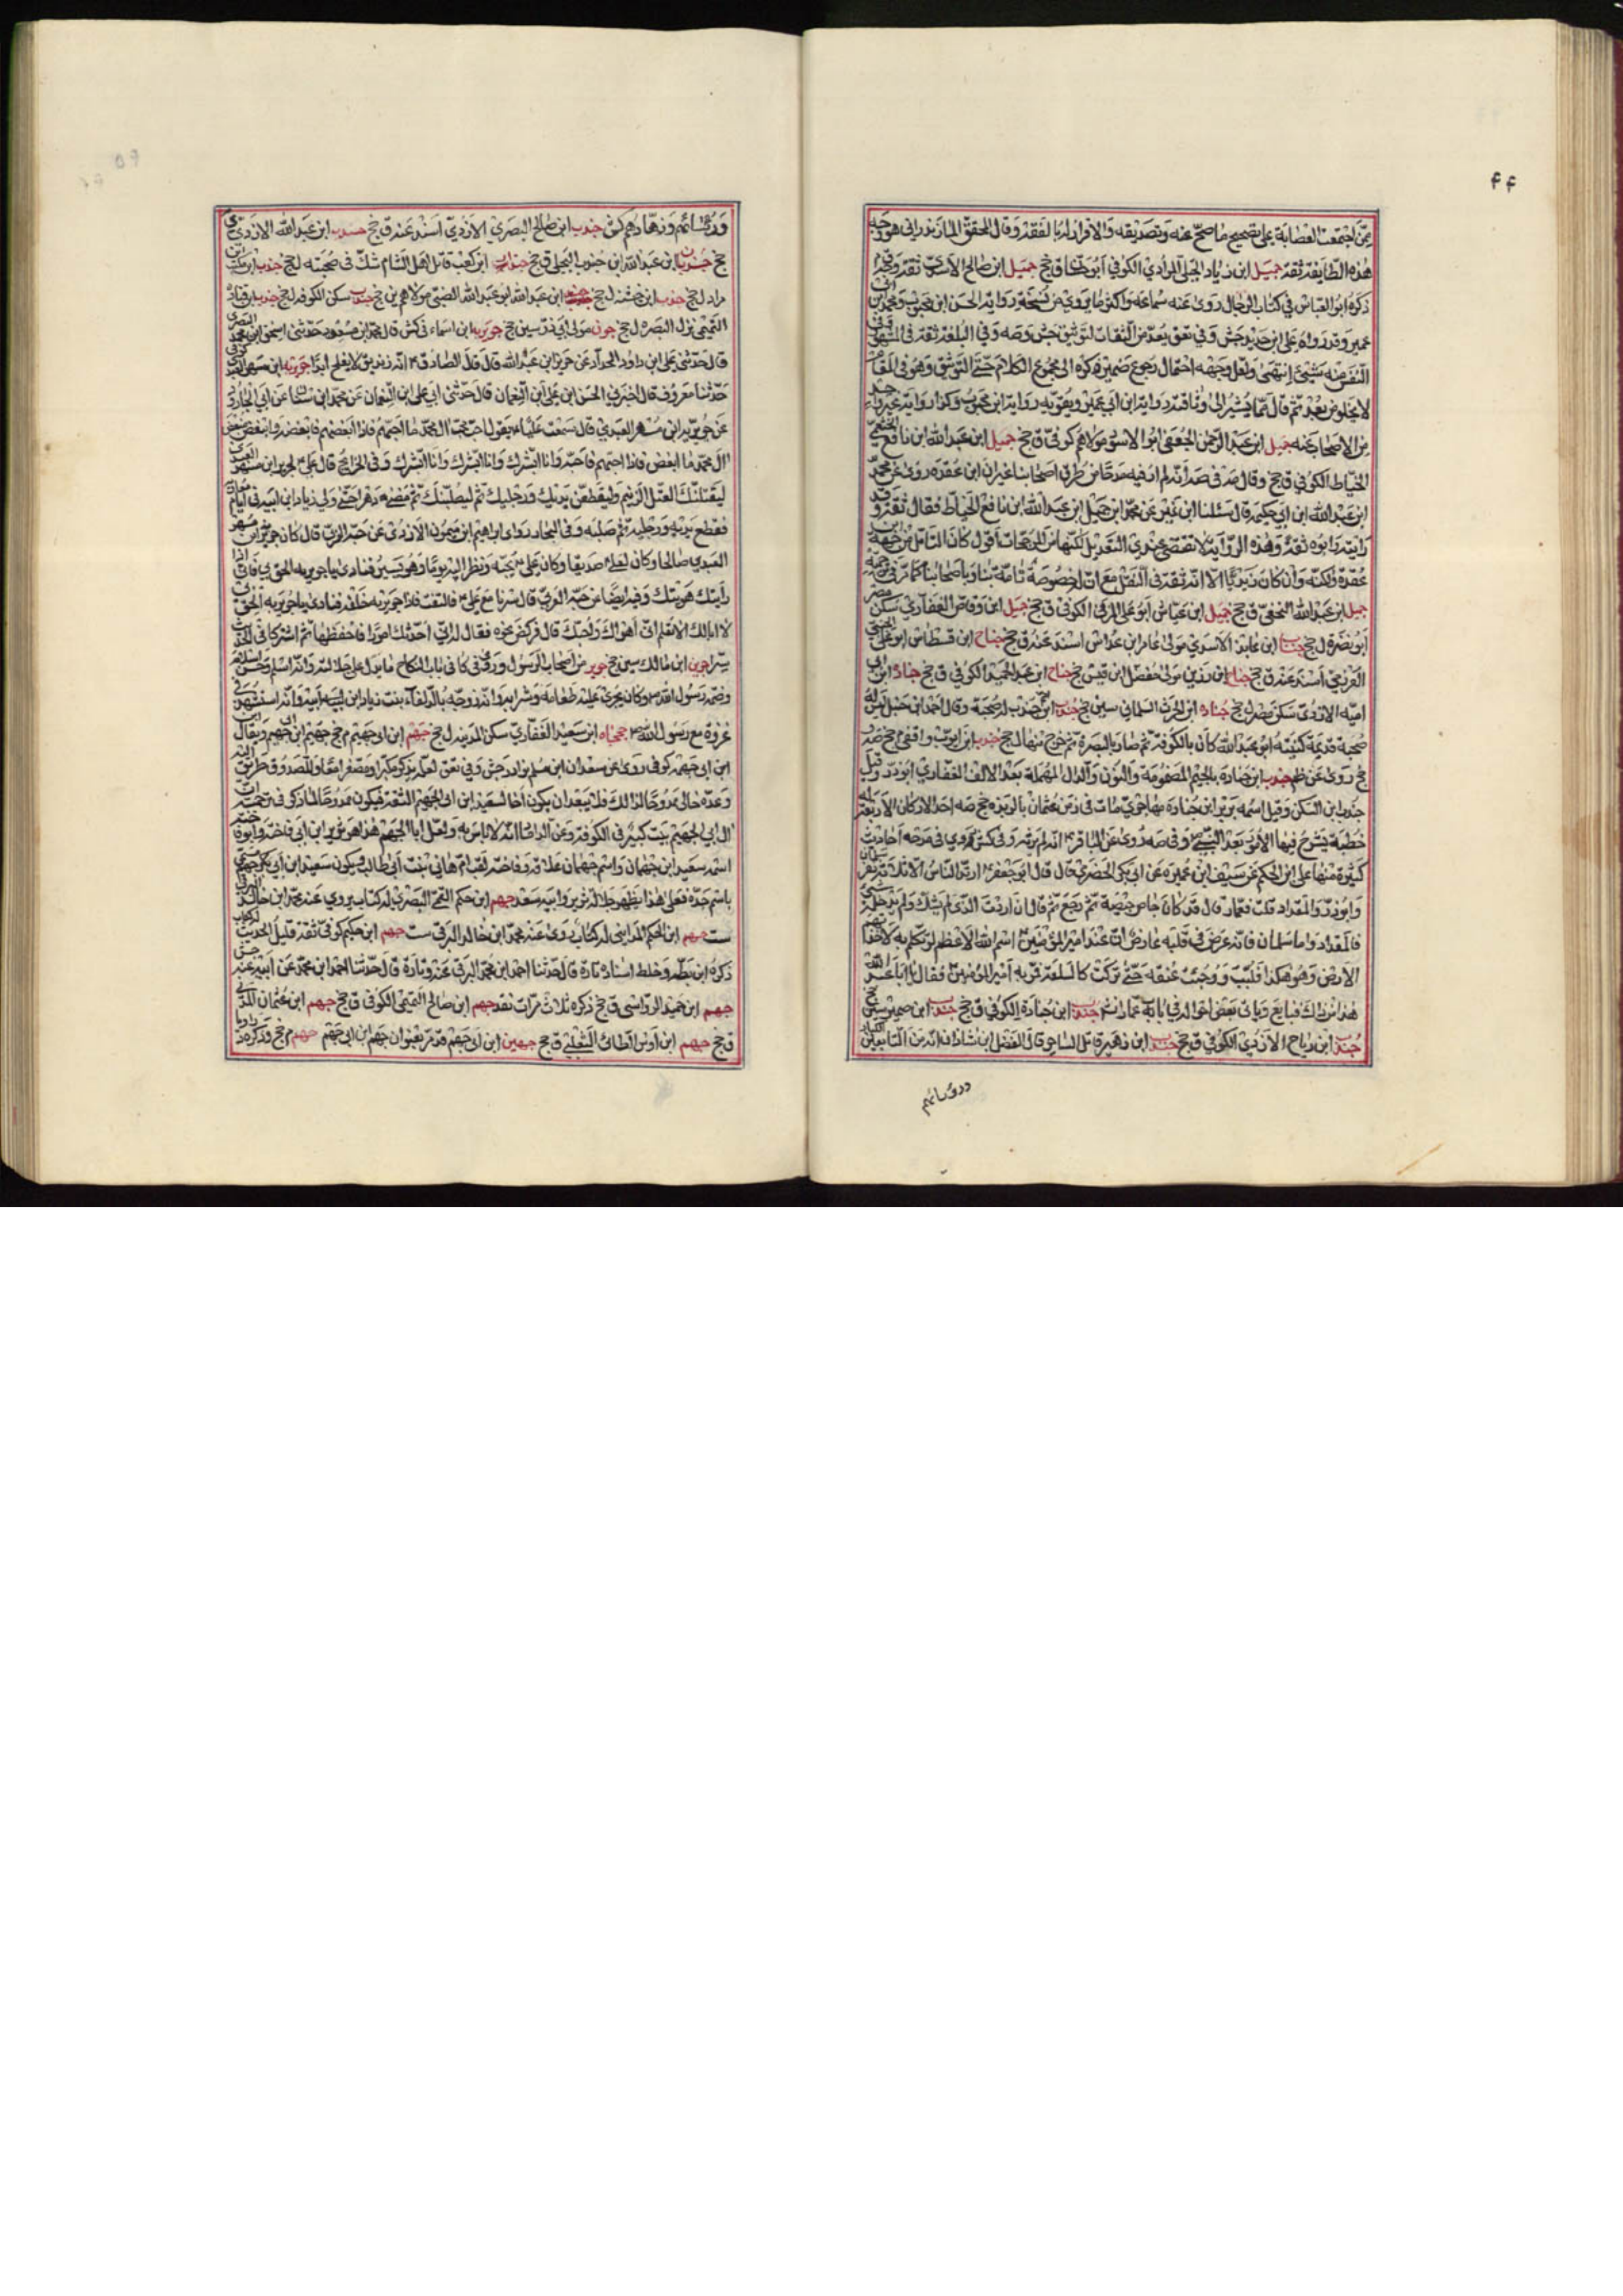 ۴۴
ممّن اجتمعت العصابة على تصحيح ما صحّ عنه وتصديقه والاقرار له بالفقه وقال المحقق المازندراني هو وجه
هذه الطايفة ثقة جميل ابن زياد الجملي المرادي الكوفي ابو حسان ق جخ جميل ابن صالح الاسدي ثقة وجه
ذكره ابو العباس في كتاب الرجال روى عنه سماعة واكثر ما يروى من نسخة رواية الحسن ابن محبوب ومحمد بن
عمير وقد رواه على ابن حديد جش وفي تعق بعد من الثقات لتوثيق جش وصه وفي البلغة ثقة في المشهور
النفس منه شيئ انتهى ولعل وجهه احتمال رجوع ضمير ذكره الى مجموع الكلام حتى التوثيق وهو في المقام
لا يخلو من بعد ثم قال مما يشير الى وثاقته رواية ابن ابي عمير ويقويه رواية ابن محبوب وكذا رواية غير واحد
من الاصحاب عنه جميل ابن عبد الرحمن الجعفي ابو الاسود مولاهم كوفي ق جخ جميل ابن عبد الله ابن نافع الخثعمي
الخياط الكوفي ق جخ وقال صه
ابن عبد الله ابن ابي حكيمة قال سئلنا ابن نمير عن محمد ابن جميل ابن عبد الله ابن نافع الخياط فقال ثقة وقد
رايته وابوه ثقة وهذه الرواية لا تقتضي عندي التعديل لكنها من المرجحات اقول كان التامل من جهة ابن
عقدة ولكنه وان كان زيديا الا انه ثقة في النقل مع ان له خصوصة تامة بنا وباصحابنا كما مر في ترجمته
جميل ابن عبد الله النخعي ق جخ جميل ابن عياش ابو علي المرقي الكوفي ق جخ جميل ابن وقاص الغفاري سكن مصر
ابو بصره ل جخ جناب ابن عائذ الاسدي مولى عامر ابن عداس اسند عنه ق جخ جناح ابن قسطاس ابو علي الجنبي
العرزمي اسند عنه ق جخ جناح ابن رزين مولى مفضل ابن قيس جخ جناح ابن عبد الحميد الكوفي ق جخ جنادة ابن ابي
امية الازدي سكن مصر ل جخ جنادة ابن الحرث السلماني سين جخ جندب ابن جندب له صحبة وقال احمد ابن حنبل ليس له
صحبة قديمة كنيته ابو عبد الله كان بالكوفة ثم صار بالبصرة ثم خرج منها ل جخ جندب ابن ايوب واقفي م جخ صه
جخ روى عن ظم جندب ابن جنادة بالجيم المضمومة والنون والدال المهملة بعد الالف الغفاري ابو ذر وقيل
جندب ابن السكن وقيل اسمه برير ابن جنادة مهاجري مات في زمن عثمان بالربذة جخ صه احد الاركان الاربعة له
خطبة يشرح فيها الامور بعد النبي وفي صه روى عن الباقر انه لم يرتد وفي كش روى في مدحه احاديث
كثيرة منها على ابن الحكم عن سيف ابن عميرة عن ابي بكر الحضرمي قال قال ابو جعفر ارتد الناس الا ثلثة نفر سلمان
وابو ذر والمقداد قلت فعمار قال قد كان جاض جيضة ثم رجع ثم قال ان اردت الذي لم يشك ولم يدخله شيئ
فالمقداد واما سلمان فانه عرض في قلبه عارض ان عند امير المؤمنين اسم الله الاعظم لو تكلم به لاخذتهم
الارض وهو هكذا فلبب ووجئت عنقه حتى تركت كالسلعة فمر به امير المؤمنين فقال يا ابا عبد الله
هذا من ذاك فبايع وياتي بعض احواله في بابه عمار انتهى جندب ابن جنادة الكوفي ق جخ جندب ابن حجير سين جخ
جندب ابن رياح الازدي الكوفي ق جخ جندب ابن زهير قاتل الساحر قال الفضل ابن شاذان انه من التابعين الكبار
ورؤسائهم
ورؤسائهم وزهادهم كش جندب ابن صالح البصري الازدي اسند عنه ق جخ جندب ابن عبد الله الازدي
جخ جندب ابن عبد الله ابن جندب البجلي ق جخ جندب ابن كعب قاتل اهل الشام شك في صحبته ل جخ جندب ابن مكيث
مراد ل جخ جندب ابن عبد الله ابو عبد الله الضبي مولاهم جخ جندب سكن الكوفة ل جخ
التميمي نزل البصرة ل جخ جون مولى ابي ذر سين جخ جويرية ابن اسماء في كش قال محمد ابن مسعود حدثني اسحق ابن محمد البصري
قال حدثني على ابن داود الحداد عن حريز ابن عبد الله قال قال الصادق انه زنديق لا يفلح ابدا جويرية ابن مسهر العبدي
حدثنا معروف قال اخبرني الحسن ابن على ابن النعمان قال حدثني ابي على ابن النعمان عن محمد ابن سنان عن ابي الجارود
عن جويرية ابن مسهر العبدي قال سمعت عليا يقول احب محب ال محمد ما احبهم فاذا ابغضهم فابغضه وابغض مبغض
ال محمد ما ابغضهم فاذا احبهم فاحبه وانا ابشرك وانا ابشرك وانا ابشرك وفي الخرائج قال على لجويرية ابن مسهر العبدي
ليقتلنك العتل الزنيم وليقطعن يديك ورجليك ثم ليصلبنك ثم مضى دهر حتى ولي زياد ابن ابيه في ايام معاوية
فقطع يديه ورجليه ثم صلبه وفي البحار روى ابراهيم ابن ميمون الازدي عن حبة العرني قال كان جويرية ابن مسهر
العبدي صالحا وكان لعلي صديقا وكان علي يحبه ونظر اليه يوما وهو يسير فنادى يا جويرية الحق بي فاني اذا
رايتك هويتك وفيه ايضا عن حبة العرني قال سرنا مع علي فالتفت فاذا جويرية خلفه فناداه يا جويرية الحق بي
لا ابا لك الا تعلم اني اهواك واحبك قال فركض نحوه فقال له اني احدثك امورا فاحفظها ثم اشتركا في الحديث
سرا جوين ابن مالك سين جخ جويبر من اصحاب الرسول وروى في كافي باب النكاح ما يدل على جلالته وانه اسلم وحسن اسلامه
وضمه رسول الله وكان يجري عليه طعامه وشرابه وانه زوجه بالدلفاء بنت زياد ابن لبيد وانه استشهد في
غزوة مع رسول الله جهجاه ابن سعيد الغفاري سكن المدينة ل جخ جهم ابن ابي جهيم م جخ جهيم ابن جهيم ويقال ابن
ابن ابي جهمة كوفي روى عن سعدان ابن مسلم نوادر جش وفي تعق لعله يذكر مكبرا ومصغرا معا وللصدوق طريق اليه
وعده خالي ممدوحا لذالك فلا يبعد ان يكون اخا لسعيد ابن ابي الجهيم الثقة فيكون ممدوحا لما ذكر في ترجمته ان
ال ابي الجهيم بيت كبير في الكوفة وعن الداماد انه لا باس به ولعل ابا الجهم هذا هو ثوير ابن ابي فاختة وابوه
اسمه سعيد ابن جهمان واسم جهمان علاقة وفاختة لقب ام هاني بنت ابي طالب ويكون سعيد ابن ابي جهم سمي
باسم جده فعلى هذا يظهر جلالة ثوير وابيه سعد جهم ابن حكم القمي البصري له كتاب يروي عنه محمد ابن خالد البرقي
ست جهم ابن الحكم المدايني له كتاب روى عنه محمد ابن خالد البرقي ست جهم ابن حكيم كوفي ثقة قليل الحديث له كتاب
ذكره ابن بطة وخلط اسناده تارة قال حدثنا احمد ابن محمد البرقي عنه وتارة قال حدثنا احمد ابن محمد عن ابيه عنه جش
جهم ابن حميد الرواسي ق جخ ذكره ثلاث مرات نقد جهم ابن صالح التميمي الكوفي ق جخ جهم ابن عثمان المدني
ق جخ جهيم ابن اوس الطائي الثعلبي ق جخ جهيم ابن ابي جهم قد مر بعنوان جهم ابن ابي جهم جهيم م جخ وذكره